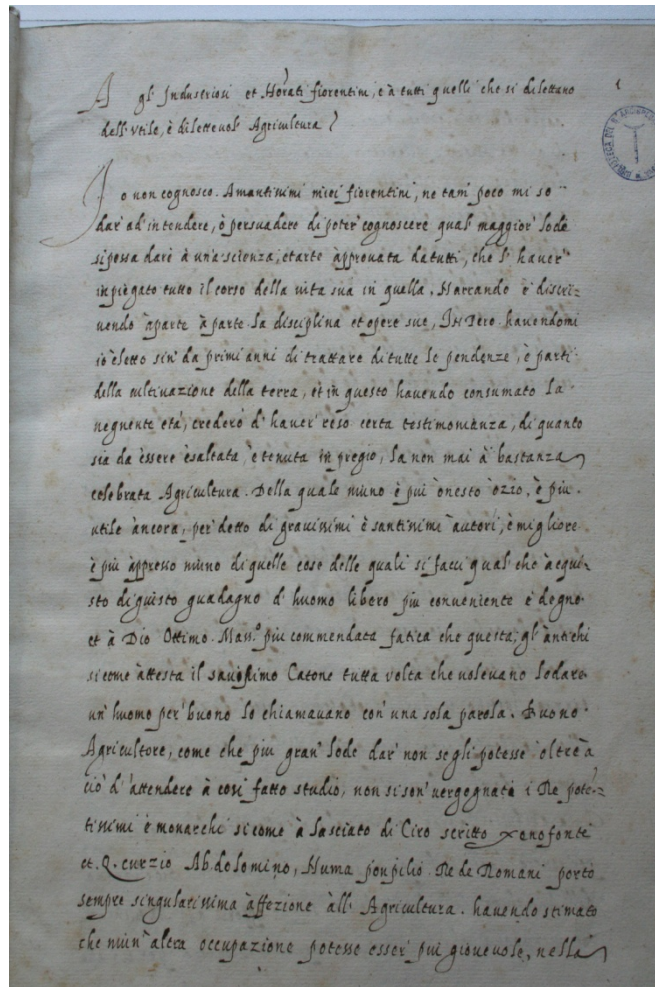 A gl' Industriosi et Ho'rati fiorentini, e à tutti quelli che si dilettano
dell' utile, è dilettevol' Agricultura
1
Io non cognosco. Amantissimi miei fiorentini, ne tam' poco mi so
dar' ad' intendere, ò persuadere di poter' cognoscere qual' maggior' lode
si possa dare à una scienza, et arte àpprovata da tutti, che l' haver'
inpiegato tutto il corso della vita sua in quella. Narrando è discri-
vendo àparte à parte la disciplina et opere sue, Pero havendomi
io eletto sin' da primi anni di trattare di tutte le pendenze, è parti
della cultivazione della terra, et in questo havendo consumato la
neguente età, crederò d' haver' reso certa testimonianza, di quanto
sia da èssere èsaltata è tenuta in pregio, la non mai à bastanza
celebrata Agricultura. Della quale niuno è più onesto òzio, è piu
utile àncora, per' detto di gravissimi è santissimi àutori, è migliore
è più àppresso niuno di quelle cose delle quali si facci qual' che àcqui-
sto di guisto guadagno d' huomo libero piu conveniente è degno
et à Dio Ottimo. Mass.o piu commendata fatica che questa; gl' àntichi
si come àttesta il saviissimo Catone tutta volta che volevano lodare
un' huomo per' buono lo chiamavano con' una sola parola. Buono
Agricultore, come che piu gran' lode dar' non se gli potesse oltre à
ciò d' attendere à cosi fatto studio, non si son' vergegnati i Re pote'-
tissimi è monarchi si come à lasciato di Ciro scritto Xenofonte
et. Q. Curzio Abdolomino, Numa Ponpilio Re de Romani portò
sempre singularissima àffezione àll' Agricultura. havendo stimato
che niun' altra occupazione potesse esser' più giovevole, nella